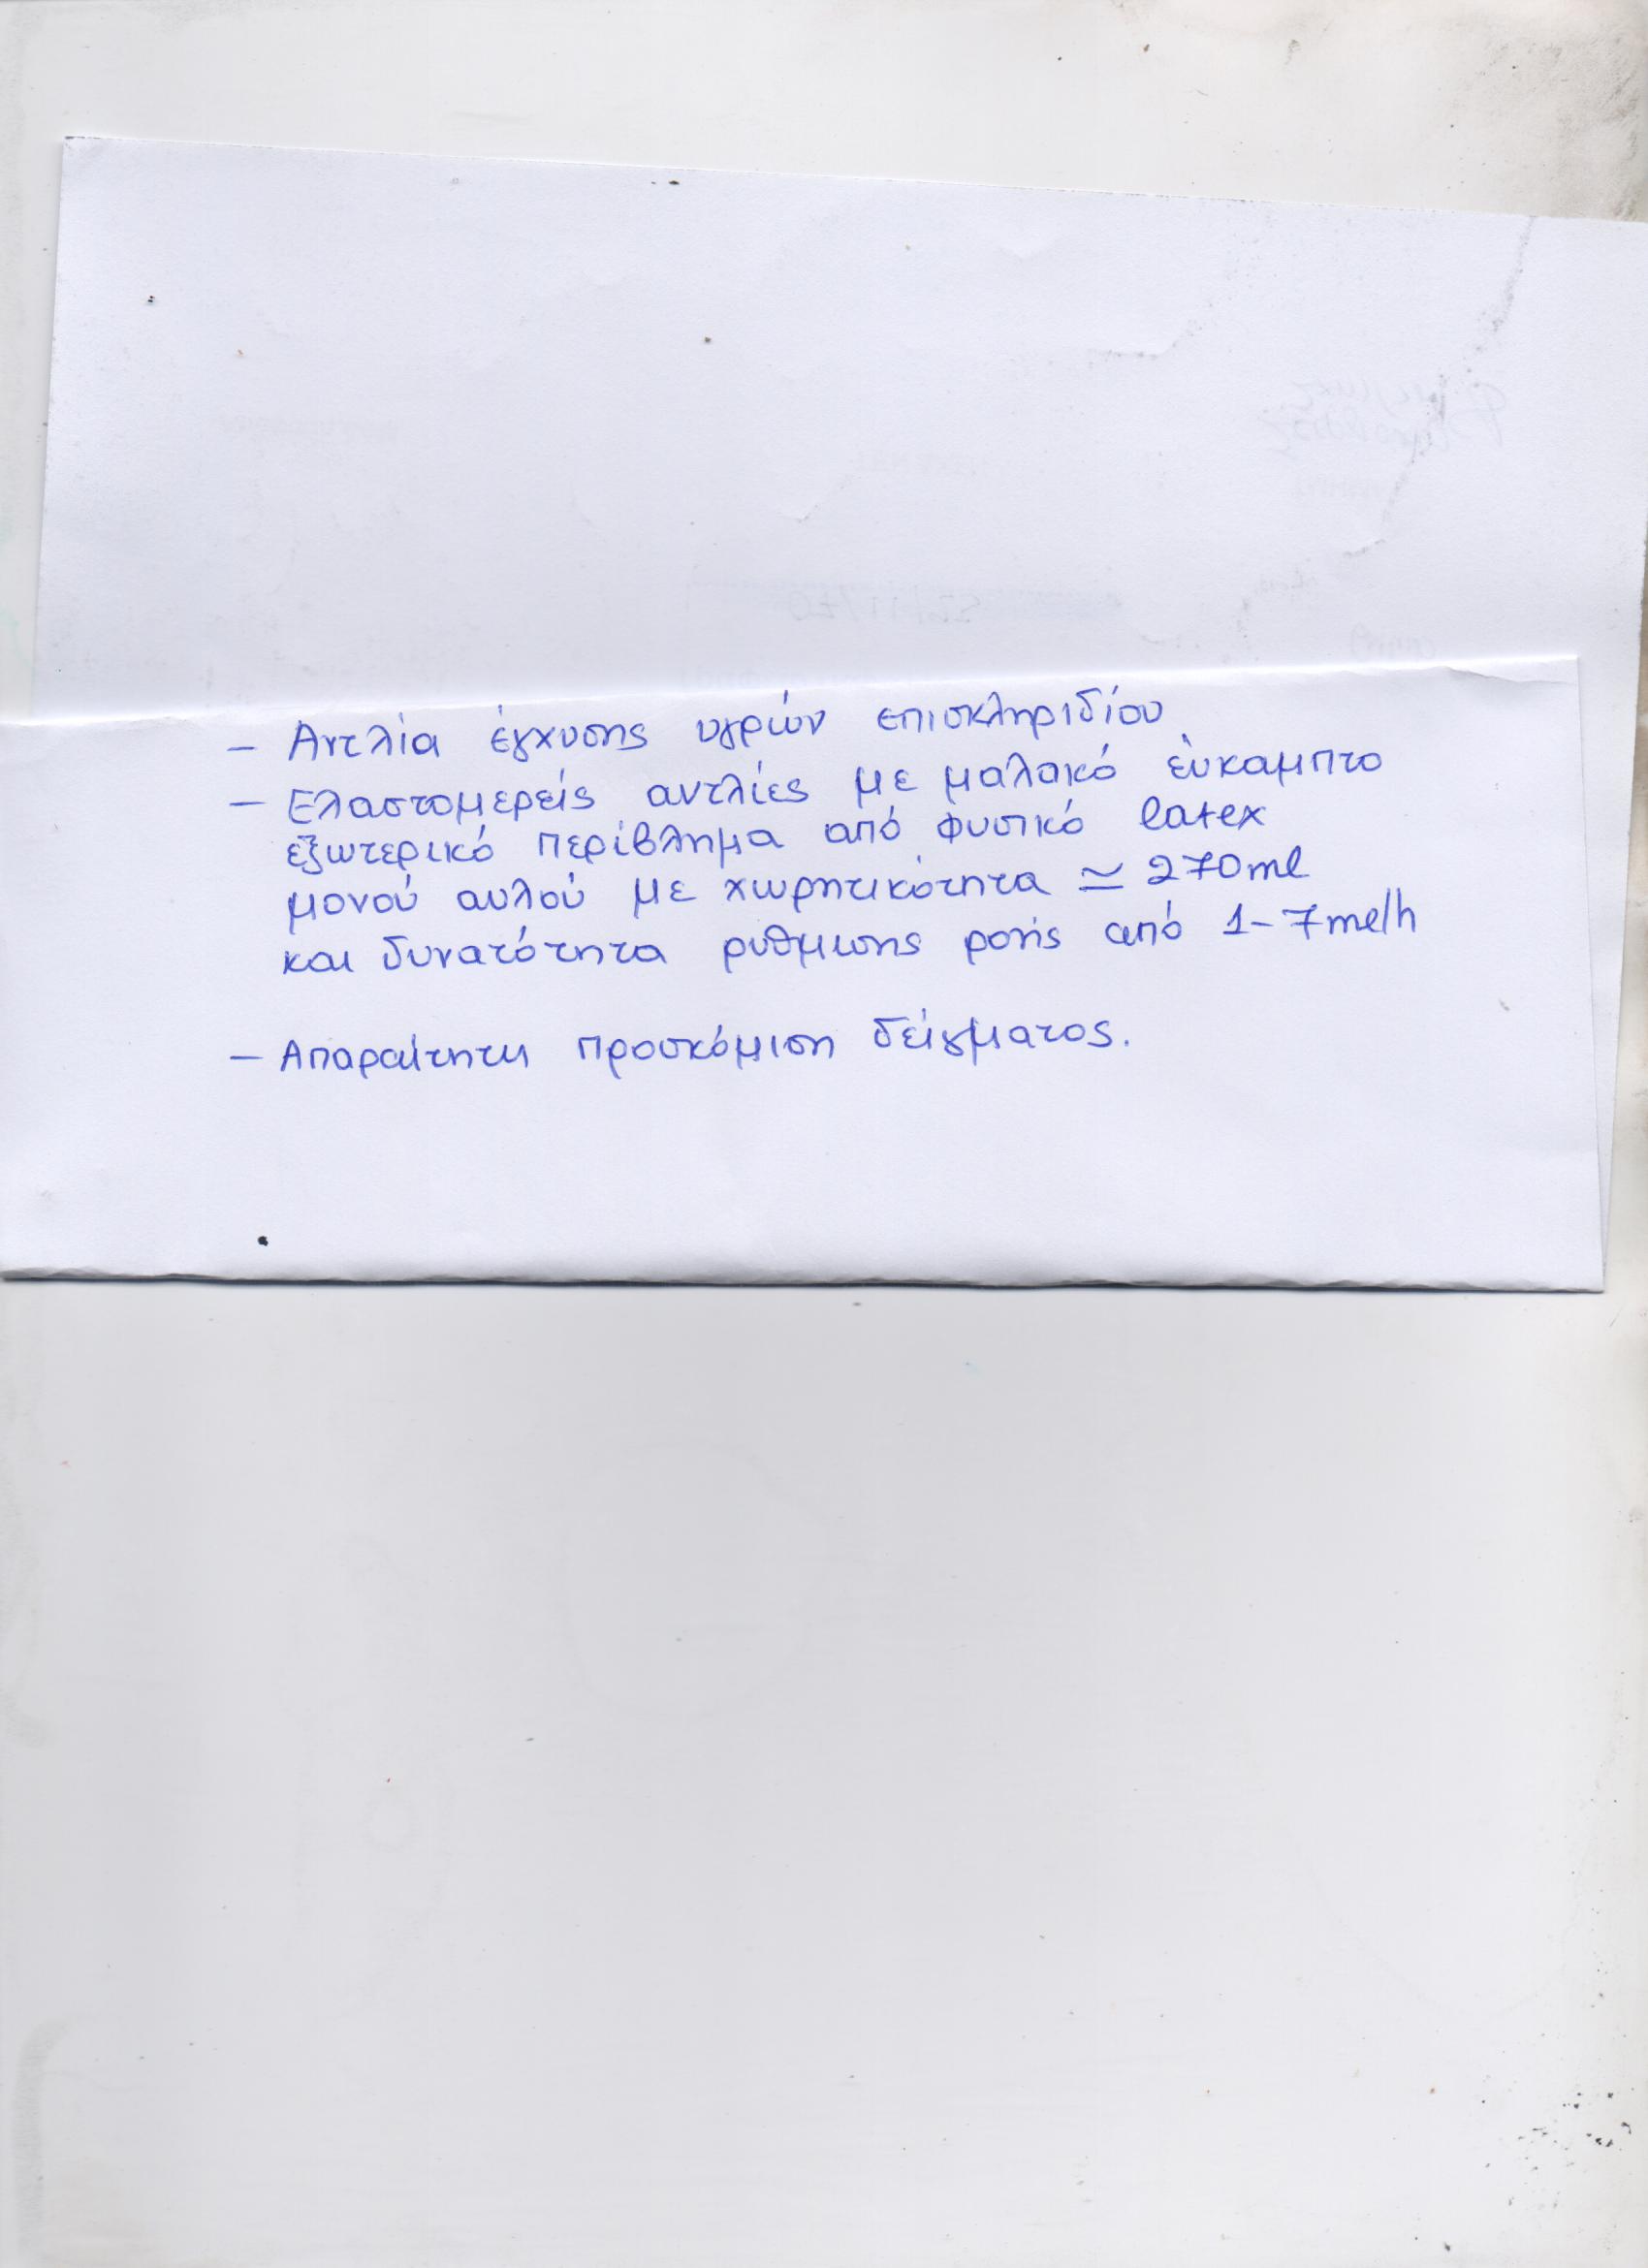 – Αντλία έγχυσης υγρών επισκληριδίου
– Ελαστομερείς αντλίες με μαλακό εύκαμπτο
εξωτερικό περίβλημα από φυσικό latex
μονού αυλού με χωρητικότητα ≃ 270ml
και δυνατότητα ρύθμισης ροής από 1-7ml/h
– Απαραίτητη προσκόμιση δείγματος.